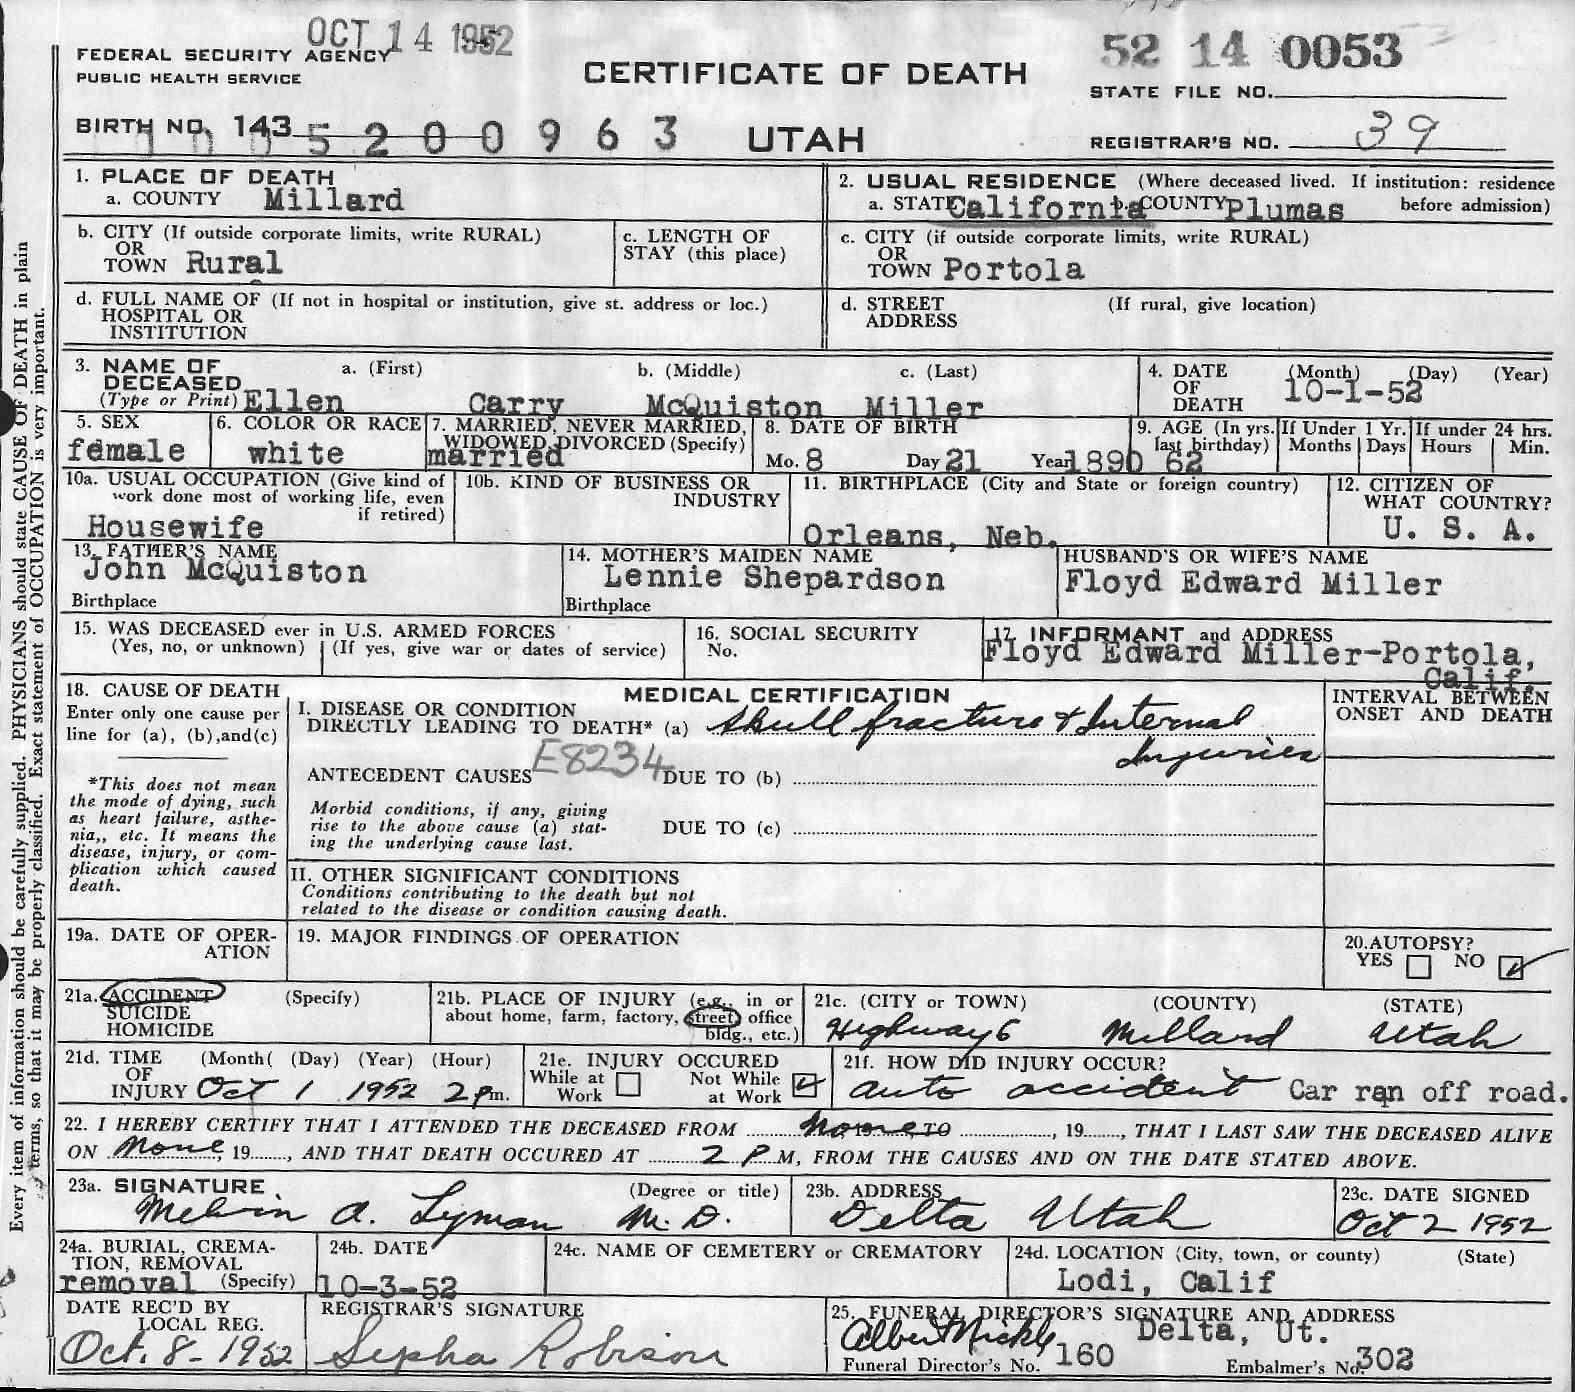 OCT 14 1952
FEDERAL SECURITY AGENCY
PUBLIC HEALTH SERVICE
CERTIFICATE OF DEATH
52 14 0053
STATE FILE NO.
BIRTH NO. 143 5200963
UTAH
REGISTRAR'S NO. 39
1. PLACE OF DEATH
a. COUNTY Millard
2. USUAL RESIDENCE (Where deceased lived. If institution: residence before admission)
a. STATE California b. COUNTY Plumas
b. CITY (If outside corporate limits, write RURAL)
OR
TOWN Rural
c. LENGTH OF
STAY (this place)
c. CITY (if outside corporate limits, write RURAL)
OR
TOWN Portola
d. FULL NAME OF (If not in hospital or institution, give st. address or loc.)
HOSPITAL OR
INSTITUTION
d. STREET (If rural, give location)
ADDRESS
3. NAME OF a. (First) b. (Middle) c. (Last)
DECEASED
(Type or Print) Ellen Carry McQuiston Miller
4. DATE (Month) (Day) (Year)
OF
DEATH 10-1-52
5. SEX
female
6. COLOR OR RACE
white
7. MARRIED, NEVER MARRIED,
WIDOWED, DIVORCED (Specify)
married
8. DATE OF BIRTH
Mo. 8 Day 21 Year 1890
9. AGE (In yrs. last birthday) 62
If Under 1 Yr.
Months Days
If under 24 hrs.
Hours Min.
10a. USUAL OCCUPATION (Give kind of
work done most of working life, even
if retired)
Housewife
10b. KIND OF BUSINESS OR
INDUSTRY
11. BIRTHPLACE (City and State or foreign country)
Orleans, Neb.
12. CITIZEN OF
WHAT COUNTRY?
U. S. A.
13. FATHER'S NAME
John McQuiston
Birthplace
14. MOTHER'S MAIDEN NAME
Lennie Shepardson
Birthplace
HUSBAND'S OR WIFE'S NAME
Floyd Edward Miller
15. WAS DECEASED ever in U.S. ARMED FORCES
(Yes, no, or unknown) (If yes, give war or dates of service)
16. SOCIAL SECURITY
No.
17. INFORMANT and ADDRESS
Floyd Edward Miller-Portola,
Calif.
18. CAUSE OF DEATH
Enter only one cause per
line for (a), (b),and(c)
*This does not mean
the mode of dying, such
as heart failure, asthe-
nia,, etc. It means the
disease, injury, or com-
plication which caused
death.
MEDICAL CERTIFICATION
I. DISEASE OR CONDITION
DIRECTLY LEADING TO DEATH* (a) Skull fracture & Internal
Injuries
ANTECEDENT CAUSES E8234 DUE TO (b)
Morbid conditions, if any, giving
rise to the above cause (a) stat-
ing the underlying cause last.
DUE TO (c)
II. OTHER SIGNIFICANT CONDITIONS
Conditions contributing to the death but not
related to the disease or condition causing death.
INTERVAL BETWEEN
ONSET AND DEATH
19a. DATE OF OPER-
ATION
19. MAJOR FINDINGS OF OPERATION
20.AUTOPSY?
YES NO
21a. ACCIDENT (Specify)
SUICIDE
HOMICIDE
21b. PLACE OF INJURY (e.g., in or
about home, farm, factory, street, office
bldg., etc.)
21c. (CITY or TOWN) (COUNTY) (STATE)
Highway 6 Millard Utah
21d. TIME (Month( (Day) (Year) (Hour)
OF
INJURY Oct 1 1952 2 Pm.
21e. INJURY OCCURED
While at Work Not While at Work
21f. HOW DID INJURY OCCUR?
auto accident Car ran off road.
22. I HEREBY CERTIFY THAT I ATTENDED THE DECEASED FROM None TO , 19 , THAT I LAST SAW THE DECEASED ALIVE
ON None, 19 , AND THAT DEATH OCCURED AT 2 P M, FROM THE CAUSES AND ON THE DATE STATED ABOVE.
23a. SIGNATURE (Degree or title)
Melvin A. Lyman M. D.
23b. ADDRESS
Delta Utah
23c. DATE SIGNED
Oct 2 1952
24a. BURIAL, CREMA-
TION, REMOVAL
removal (Specify)
24b. DATE
10-3-52
24c. NAME OF CEMETERY or CREMATORY
24d. LOCATION (City, town, or county) (State)
Lodi, Calif
DATE REC'D BY
LOCAL REG.
Oct. 8- 1952
REGISTRAR'S SIGNATURE
Sepha Robison
25. FUNERAL DIRECTOR'S SIGNATURE AND ADDRESS
Albert Nickle Delta, Ut.
Funeral Director's No. 160 Embalmer's No. 302
Every item of information should be carefully supplied. PHYSICIANS should state CAUSE OF DEATH in plain
terms, so that it may be properly classified. Exact statement of OCCUPATION is very important.